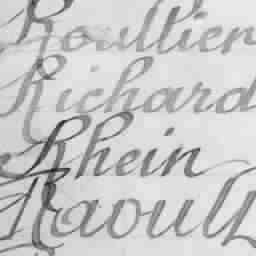 Roullier
Richard
Rhein
Raoull